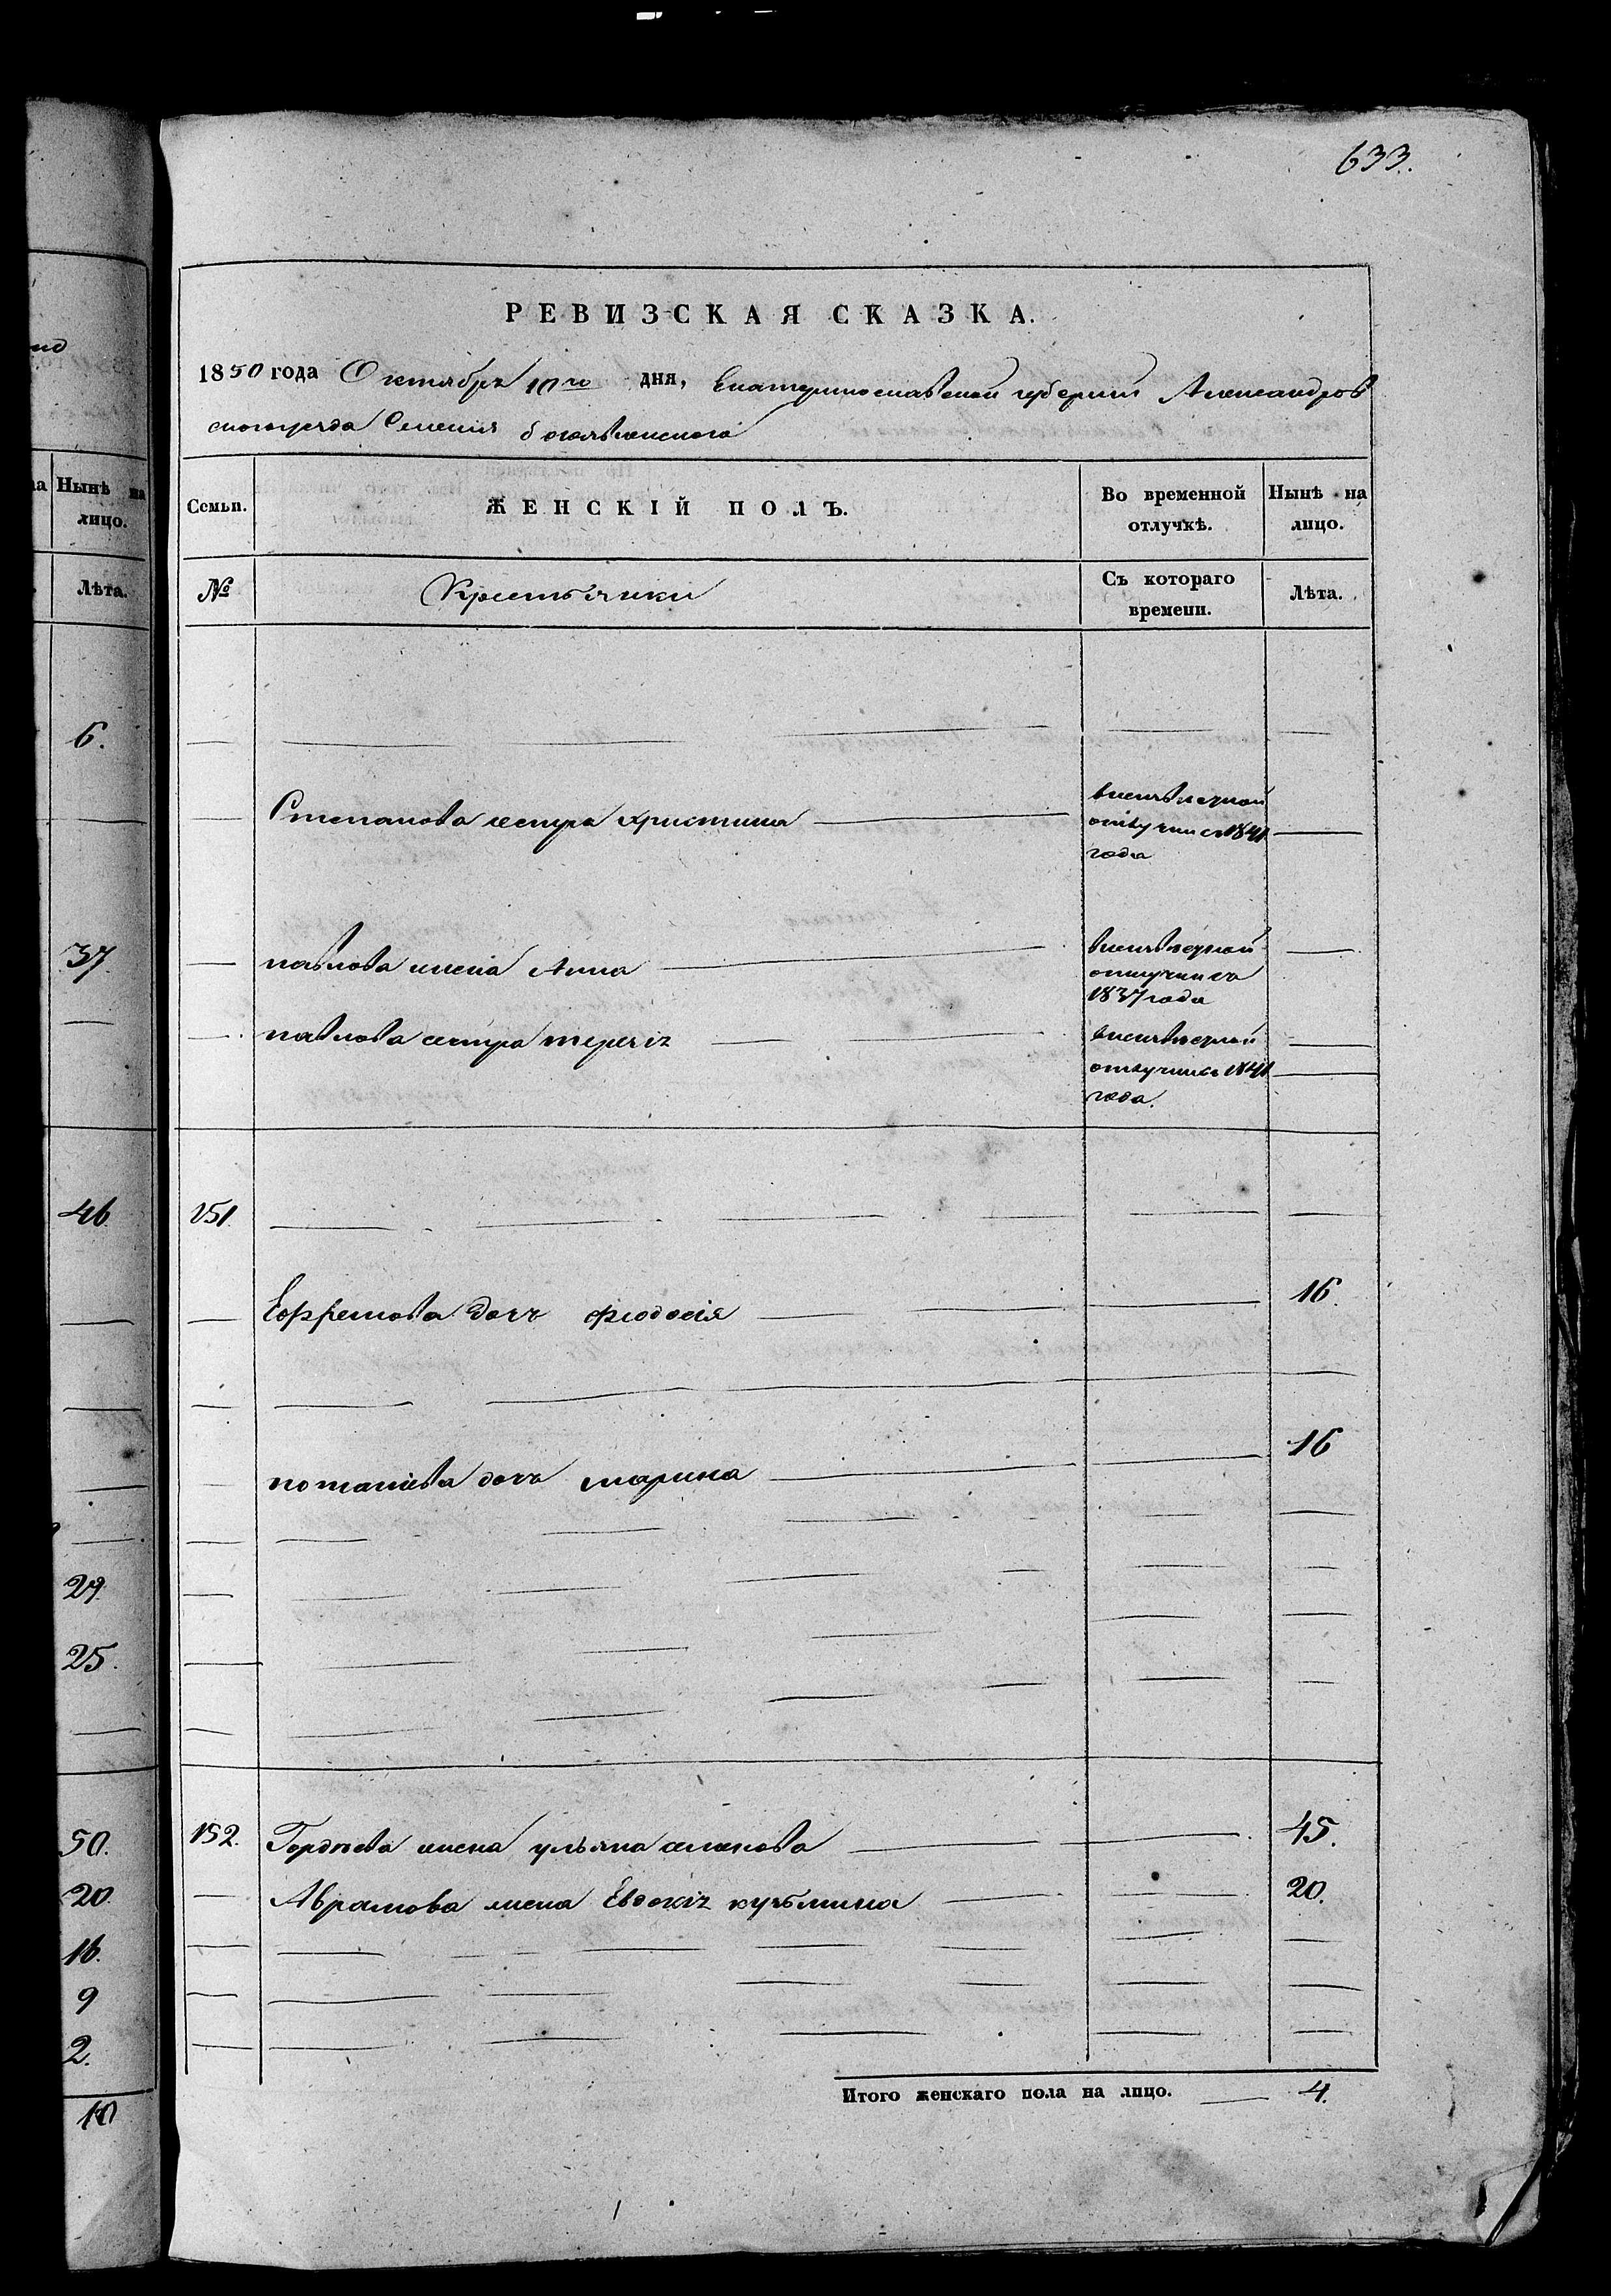 633.
РЕВИЗСКАЯ СКАЗКА.
1850 года Октября 10го дня, Екатеринославской губернии Александров
скогоуезда Селения боголвленского
Семьи.
ЖЕНСКІЙ ПОЛЪ.
Во временной отлучкѣ.
Нынѣ на лицо.
№
Крестьянки
Съ котораго времени.
Лѣта.
Степанова сестра христина
1841 года
павлова жена Анна
1837 года
павлова сестра
1841 года.
151.
Ефремова дочь феодосія 16.
потапіева дочь марина 16
152. Гордѣева жена ульяна семенова 45.
Абрамова жена Евдокія кузьмина 20.
Итого женскаго пола на лицо. 4.
Нынѣ на
лицо.
Лѣта.
6.
37
46
29.
25.
50.
20.
16.
9
2.
10